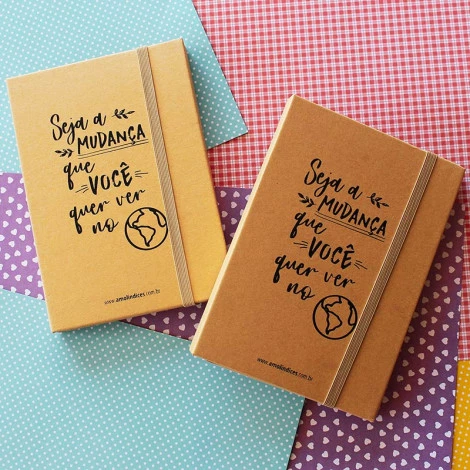 Seja a
MUDANÇA
que
VOCÊ
quer ver
no
www.amalindices.com.br
Seja a
MUDANÇA
que
VOCÊ
quer ver
no
www.amalindices.com.br